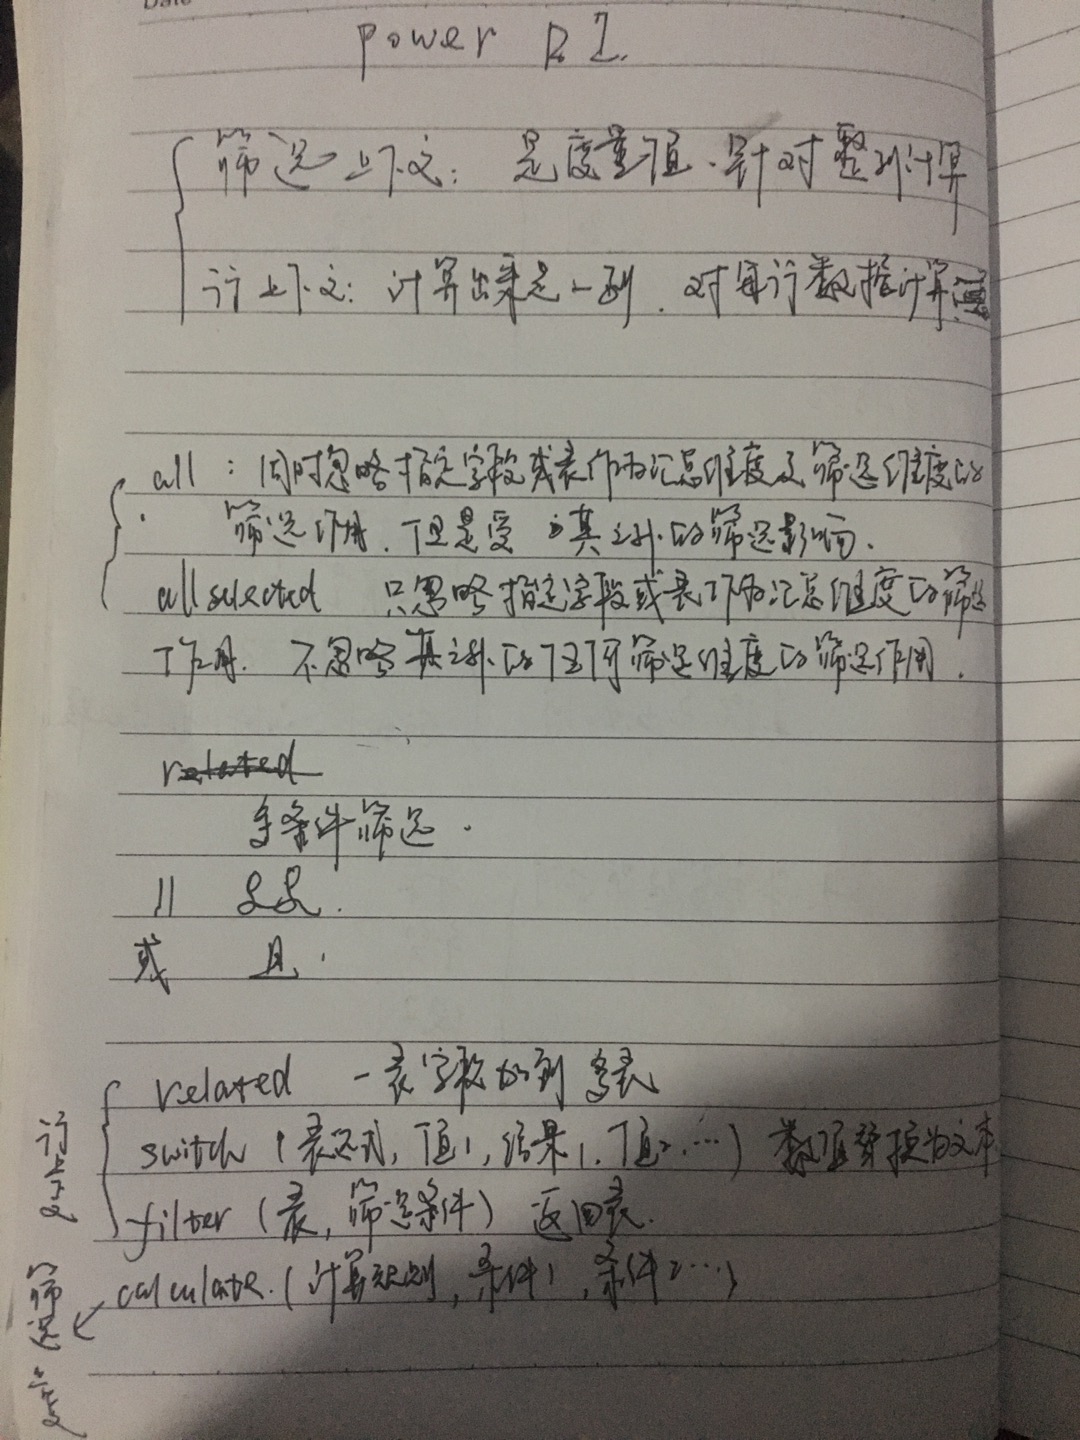 Date
power BI
筛选上下文: 是度量值.针对整列计算
行上下文: 计算出来是一列. 对每行数据计算
all: 同时忽略指定字段或表作为汇总维度及筛选维度的
筛选作用.但是受其之外的筛选影响.
allselected 只忽略指定字段或表作为汇总维度的筛选
作用. 不忽略其之外的任何筛选维度的筛选作用.
related
多条件筛选.
|| &&.
或 且.
related 一表字段 到 多表
switch (表达式, 值1, 结果1, 值2, …) 数值替换为文本
filter (表, 筛选条件) 返回表.
calculate. (计算规则, 条件1, 条件2…)
行上下文
筛选上下文